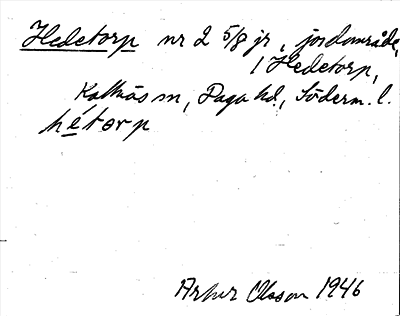 Hedetorp nr 2 5/8 jr, jordområde,
i Hedetorp,
Kattnäs sn, Daga hd., Söderm. l.
hétorp
Artur Olsson 1946